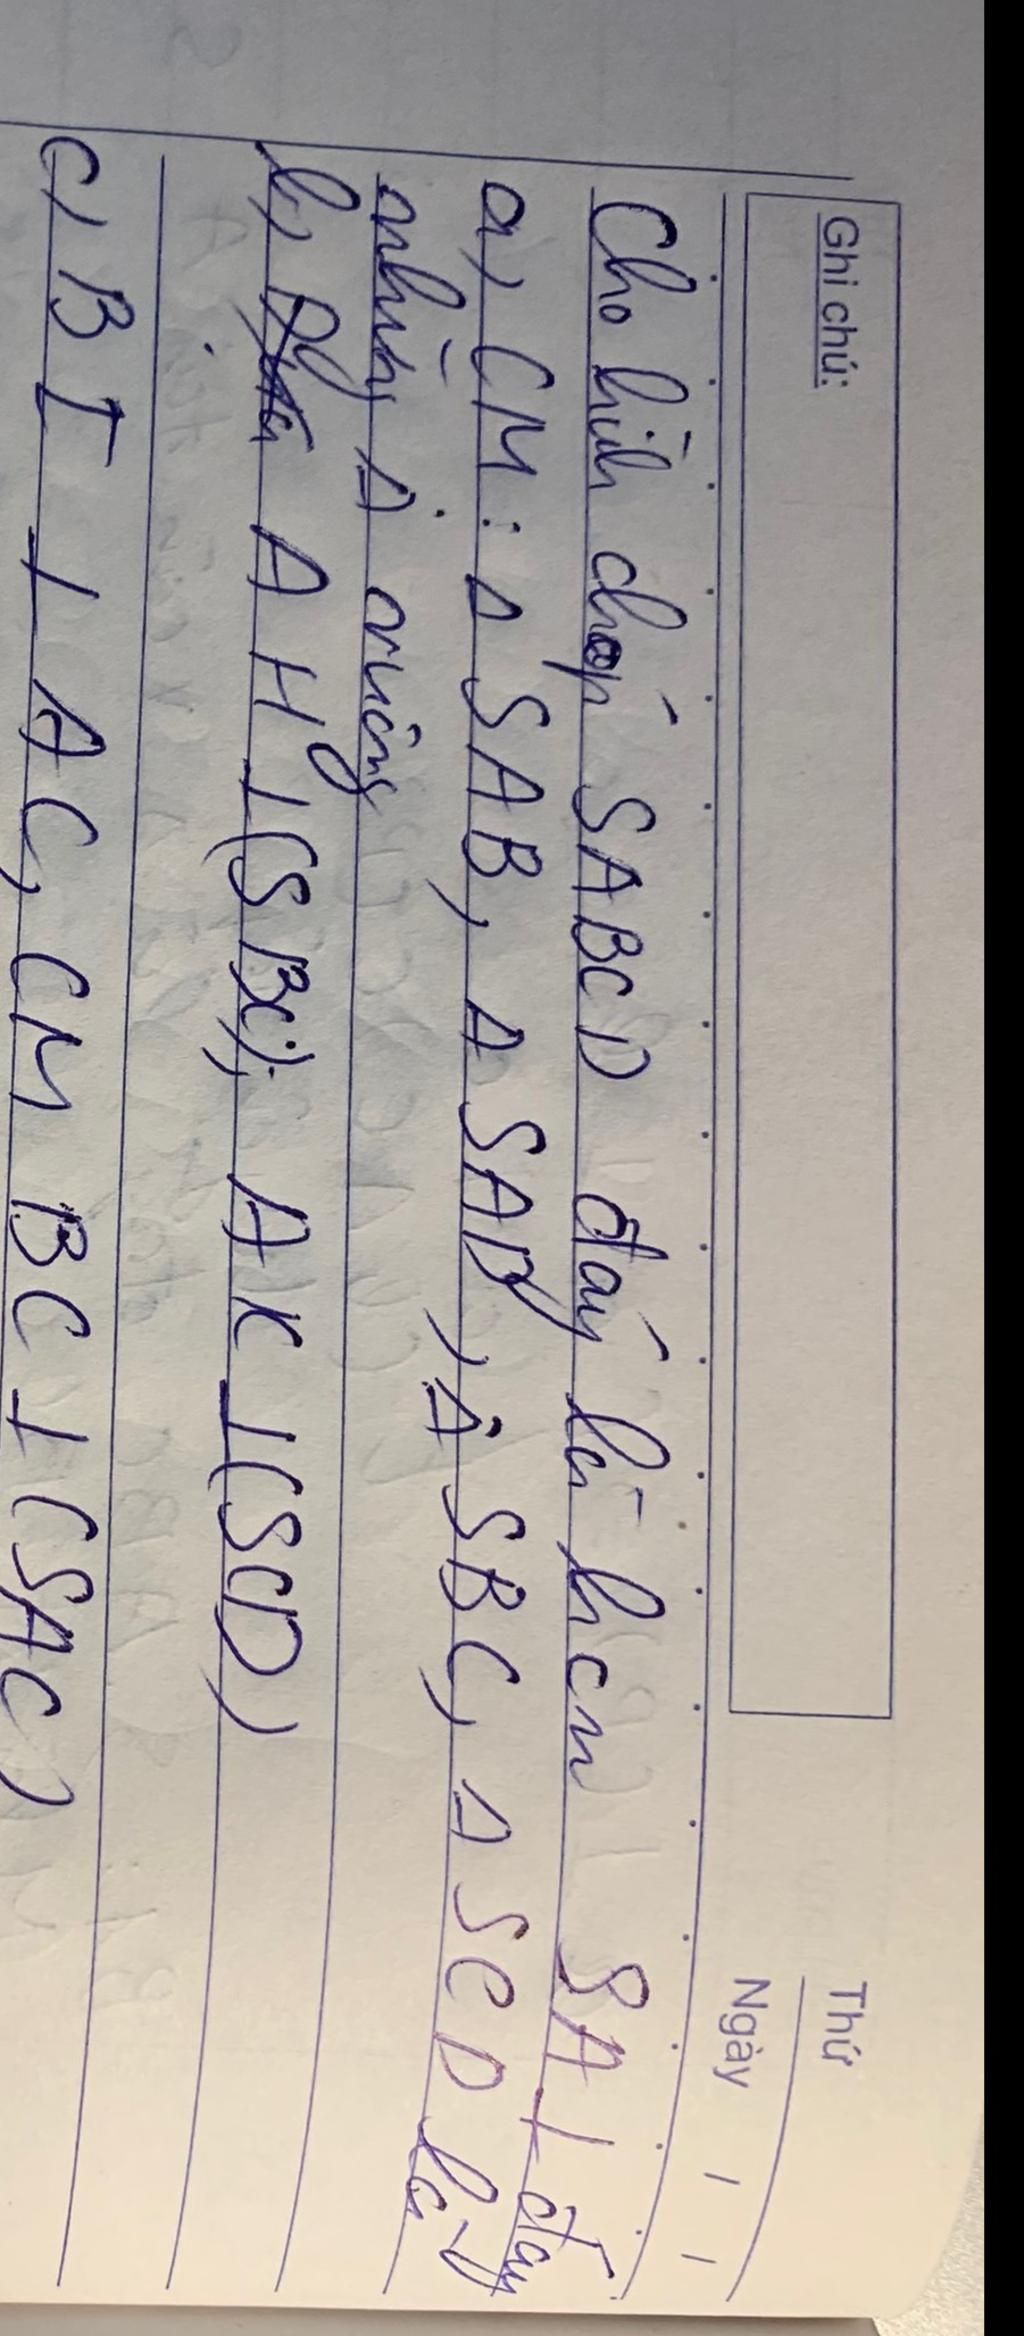 Ghi chú:
Thứ
Ngày / /
Cho hình chóp SABCD đáy là hcn SA ⊥ đáy
a, CM: Δ SAB, Δ SAD, Δ SBC, Δ SCD là
những Δ vuông
b, AH ⊥ (SBC); AK ⊥ (SCD)
c, BI ⊥ AC, CM BC ⊥ (SAC)